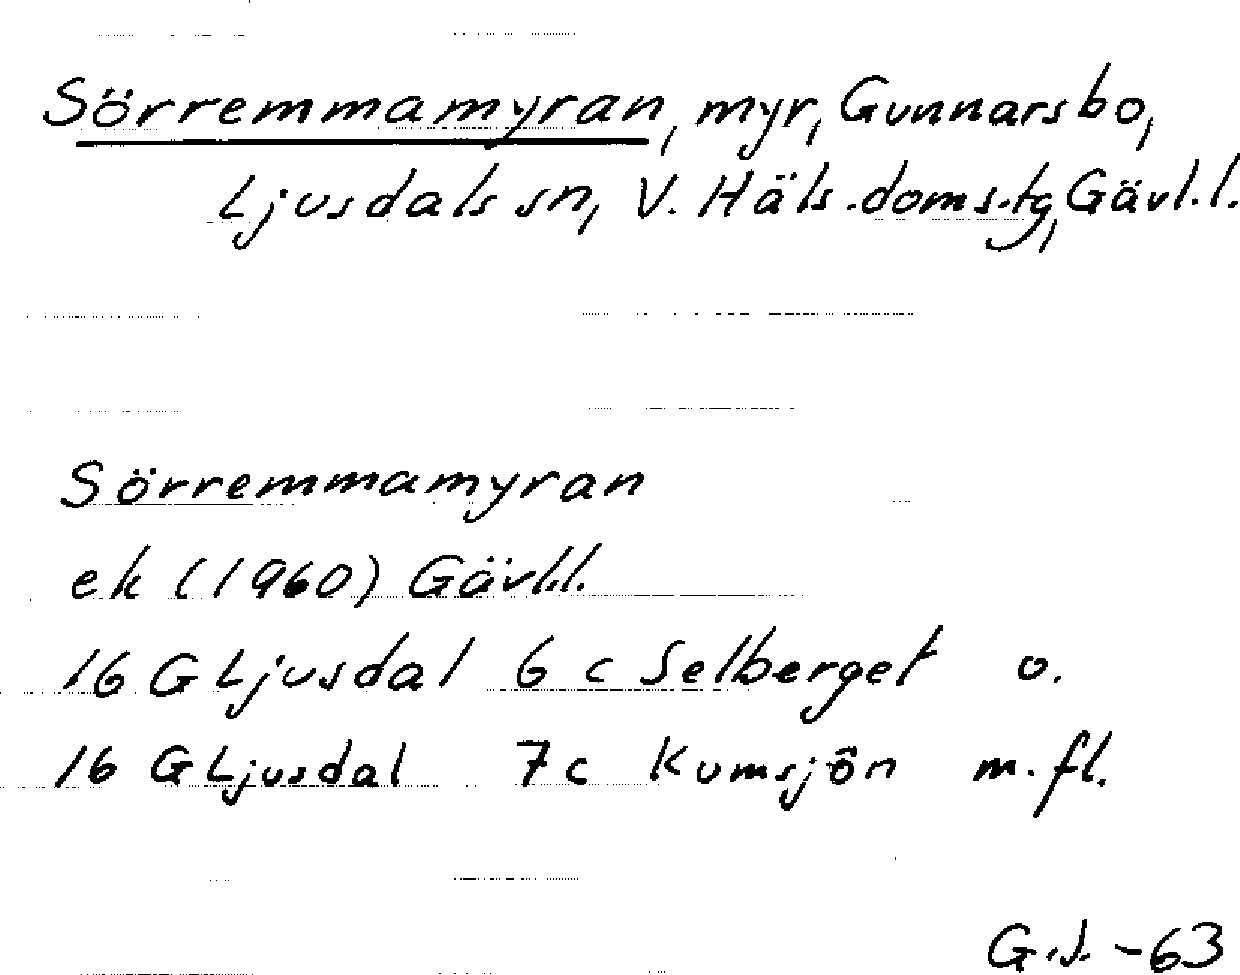 Sörremmamyran, myr, Gunnarsbo,
Ljusdals sn, V. Häls.doms.tg, Gävl.l.
Sörremmamyran
ek (1960) Gävl.l.
16 G Ljusdal 6 c Selberget o.
16 G Ljusdal 7 c Kumsjön m.fl.
G.J. -63